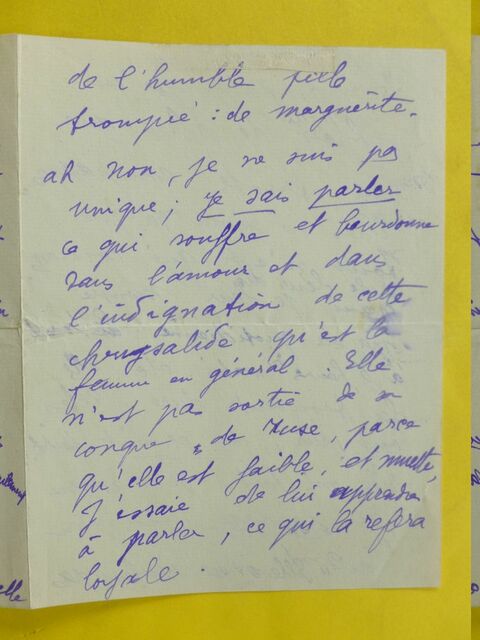 de l'humble
trompé : de marguerite.
ah non, je ne suis pas
unique ; je sais parler
ce qui souffre et bourdonne
dans l'amour et dans
l'indignation de cette
chrysalide qu'est la
femme en général. Elle
n'est pas sortie de sa
conque de ruse, parce
qu'elle est faible, et muette,
J'essaie de lui apprendre
à parler, ce qui la refera
loyale.